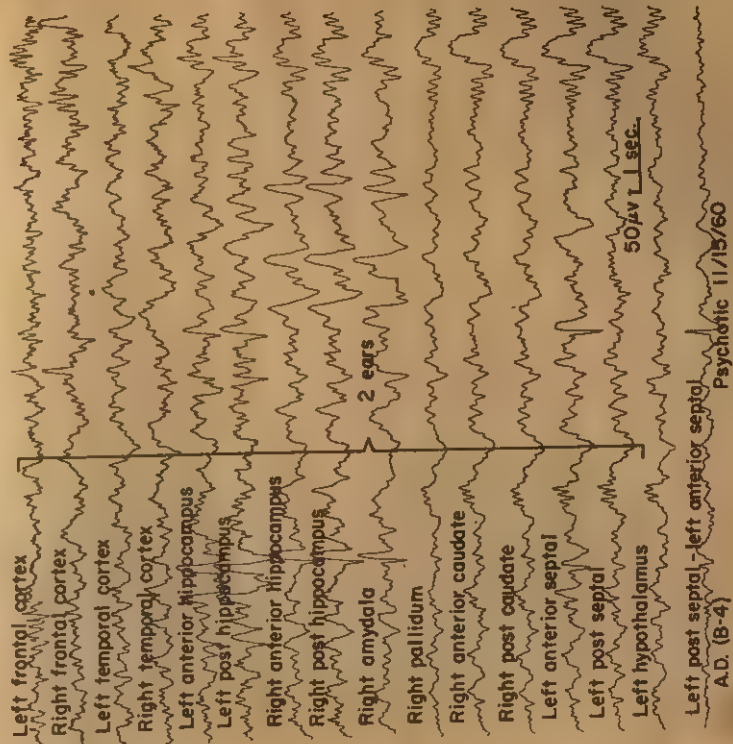 Left frontal cortex
Right frontal cortex
Left temporal cortex
Right temporal cortex
Left anterior hippocampus
Left post hippocampus
Right anterior hippocampus
Right post hippocampus
Right amydala
2 ears
Right pallidum
Right anterior caudate
Right post caudate
Left anterior septal
Left post septal
50μv 1 sec.
Left hypothalamus
Left post septal-left anterior septal
A.D. (B-4)
Psychotic 11/15/60